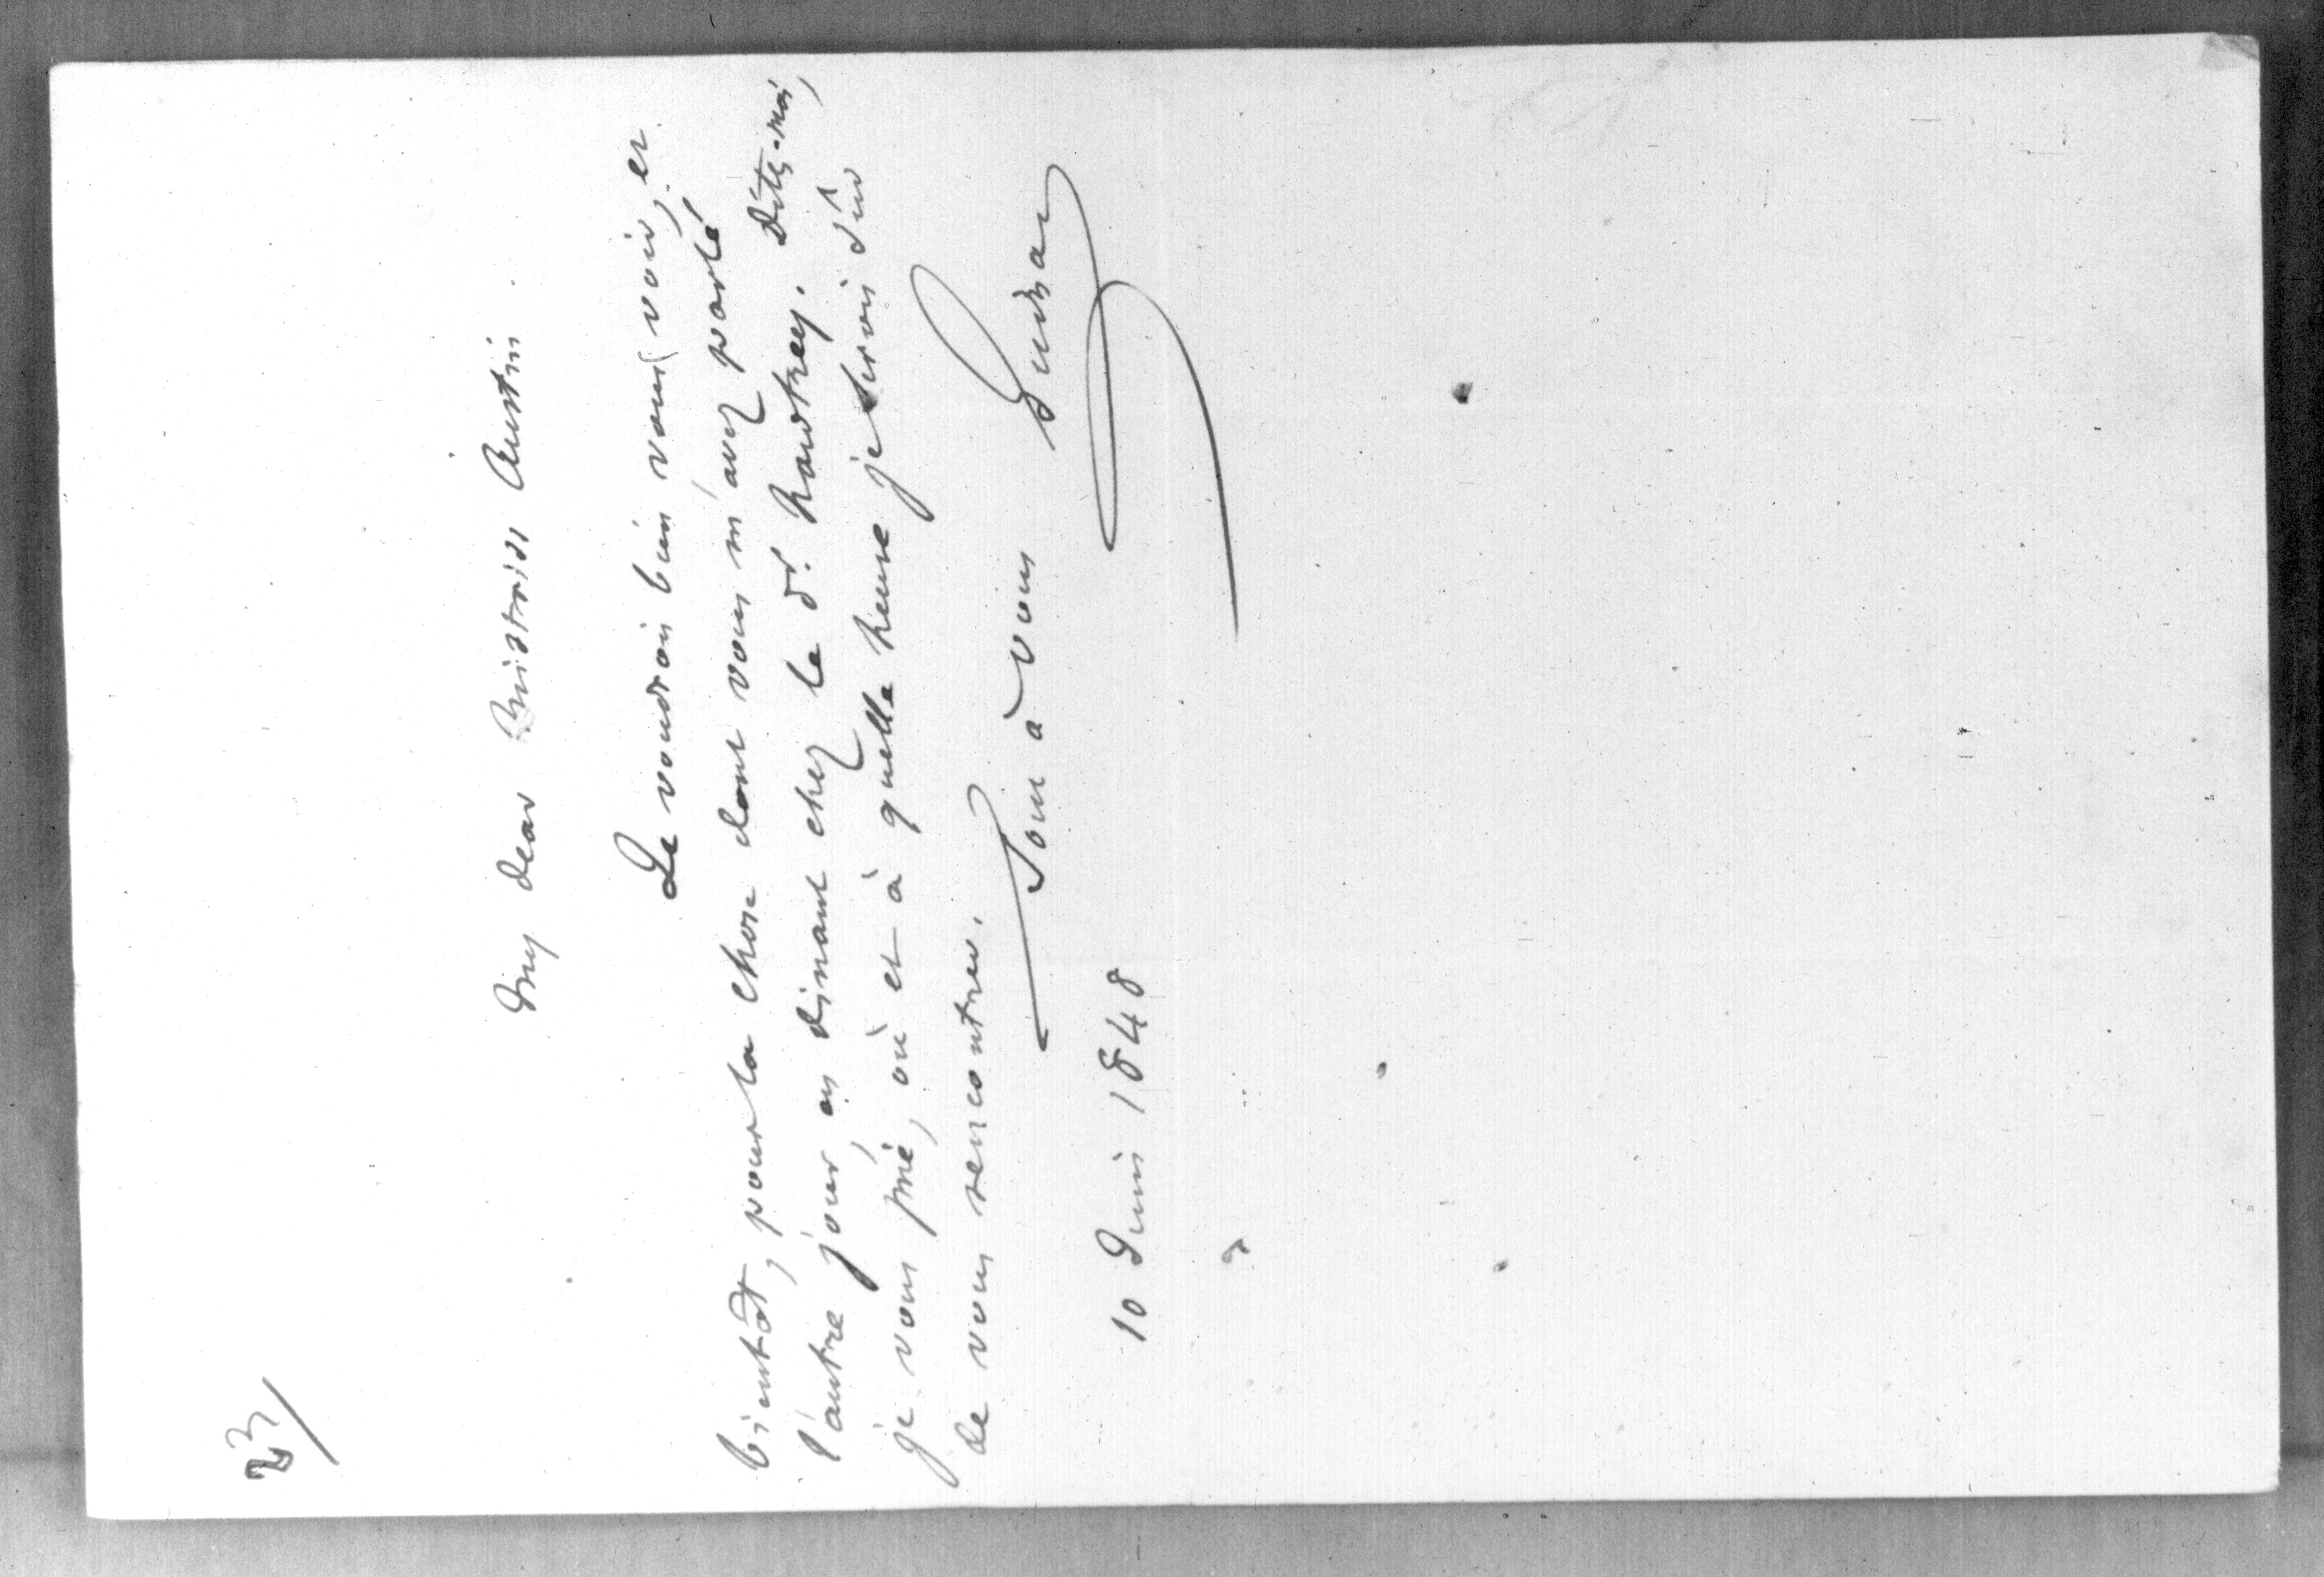 23/
My dear Mistriss Austin
Je voudrois bien vous voir, et
bientôt, pour la chose dont vous m'avez parlé
l'autre jour, en dinant chez le Dr. Hawtrey. Dites-moi,
je vous prie, où et à quelle heure je serois sûr
de vous rencontrer.
Tout à vous
Guizot
10 Juin 1848